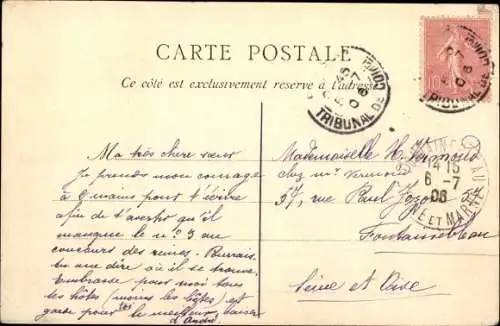 CARTE POSTALE
Ce côté est exclusivement réservé à l'adresse
TRIBUNAL DE COM
TRIBUNAL DE COM
10
14 15
6 - 7
06
NE ET MARNE
Ma très chère sœur
Je prends mon courage
à 2 mains pour t'écrire
afin de t'avertir qu'il
manque le n° 3 au
concours des reines. Pourrais
tu me dire où il se trouve.
Embrasse pour moi tous
tes hôtes (moins les bêtes) et
garde pour toi le meilleur baiser
d'André
Mademoiselle H.
chez Mr
57, rue Paul
Fontainebleau
Seine et Oise